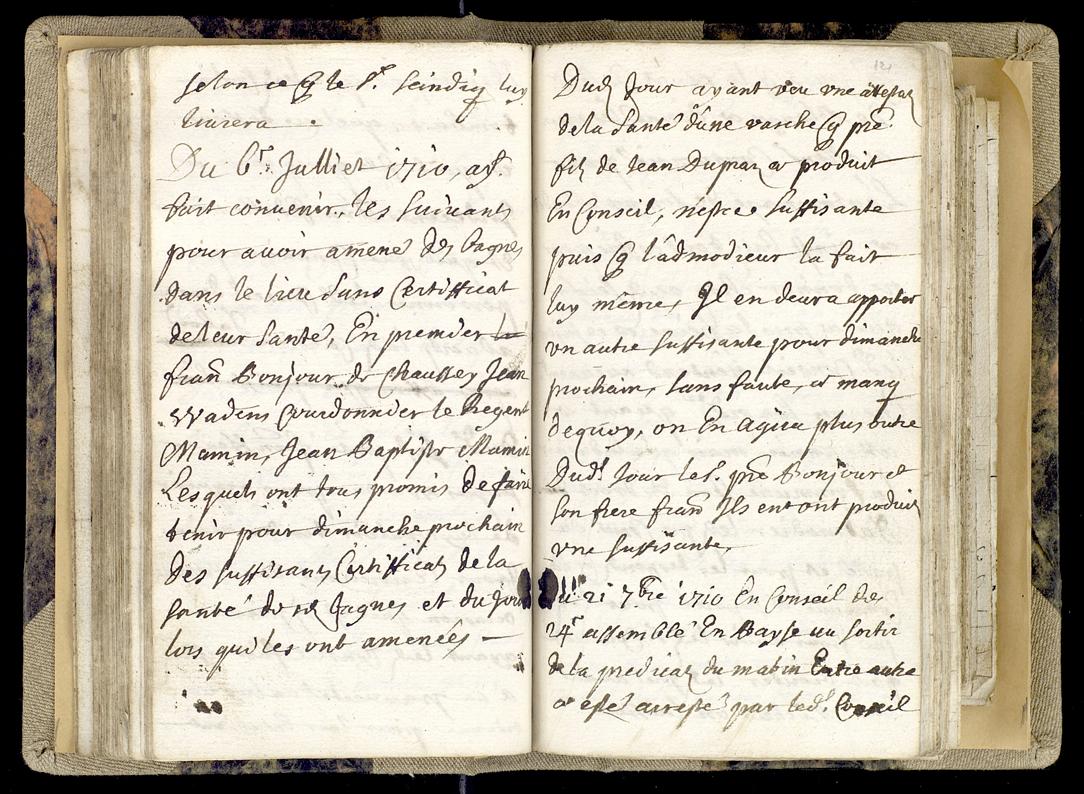 selon ce q le Sr. Scindiq luy
livrera.
Du 6r. Julliet 1710, ayt.
fait convenir, les suivants
pour avoir amené des vagnes
dans le lieu sans Certifficat
de leur santé, En premier
fran Bonjour, de Chaussey Jean
Wadens Courdonnier le Regent
Mamin, Jean Baptiste Mamin
Lesquels ont tous promis de faire
tenir pour dimanche prochain
des suffisants Certifficats de la
santé de sd vagnes et du Jour
lors quil les ont amenées —
121
Dud Jour ayant veu une attestat
de la Santé dune vasche q pre.
filz de Jean Dupraz a produit
En Conseil, nestce suffisante
puis q l'admodieur la fait
luy même, Il en devra apporter
un autre suffisante pour dimanche
prochain, sans faute, a manq
dequoy, on En agira plus outre
Dudt. Jour le S. pre Bonjour et
son frere fran Ils en ont produit
une suffisante,
Du 21 7bre 1710 En Conseil des
24r assemblé En Bayse au sortir
de la predicat du matin Entre autre
a esté arresté par ledt. Conseil